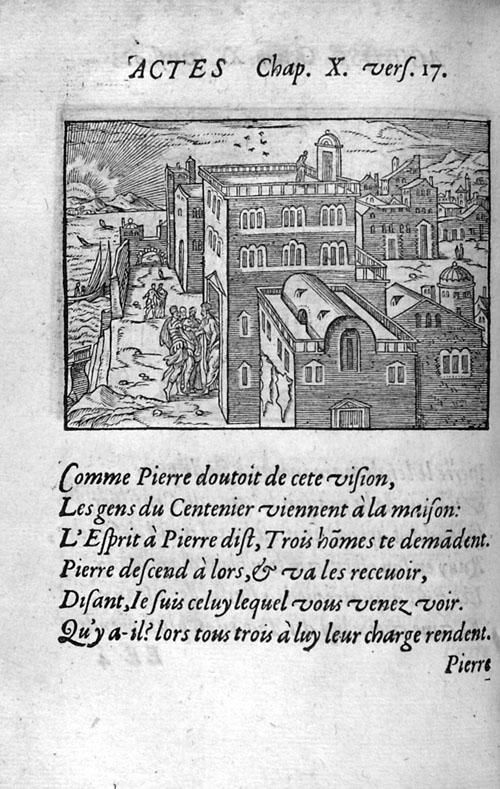 ACTES Chap. X. vers. 17.
Comme Pierre doutoit de cete vision,
Les gens du Centenier viennent à la maison:
L'Esprit à Pierre dist, Trois hõmes te demãdent.
Pierre descend à lors, & va les recevoir,
Disant, Ie suis celuy lequel vous venez voir.
Qu'y a-il? lors tous trois à luy leur charge rendent.
Pierre